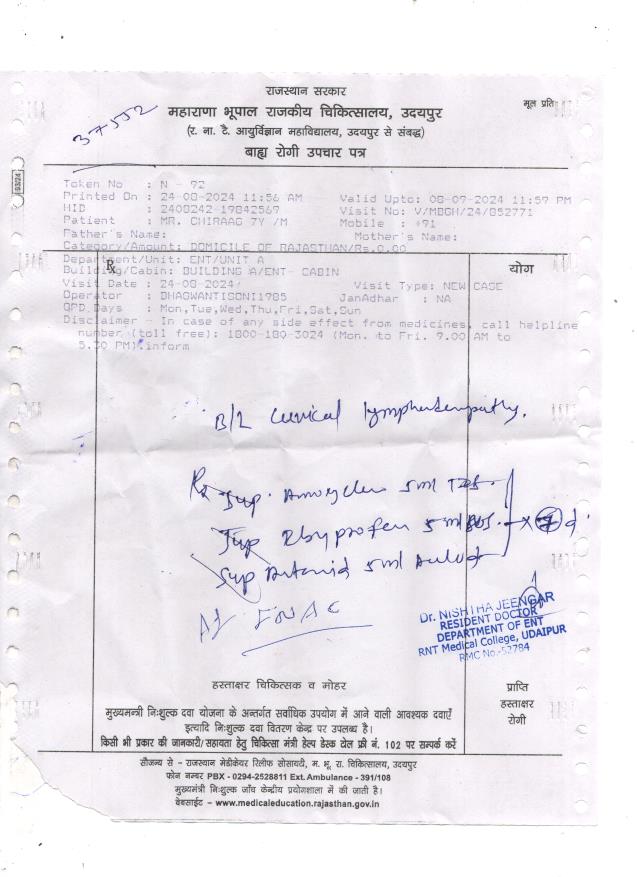 राजस्थान सरकार
महाराणा भूपाल राजकीय चिकित्सालय, उदयपुर
मूल प्रति
(र. ना. टै. आयुर्विज्ञान महाविद्यालय, उदयपुर से संबद्ध)
बाह्य रोगी उपचार पत्र
37552
03/24
Token No : N - 92
Printed On : 24-08-2024 11:56 AM Valid Upto: 08-09-2024 11:59 PM
HID : 2408242-19842569 Visit No: V/MBGH/24/852771
Patient : MR. CHIRAAG 7Y /M Mobile : +91
Father's Name: Mother's Name:
Category/Amount: DOMICILE OF RAJASTHAN/Rs.0.00
Department/Unit: ENT/UNIT A
℞ योग
Building/Cabin: BUILDING A/ENT- CABIN
Visit Date : 24-08-2024/ Visit Type: NEW CASE
Operator : BHAGWANTISONI1985 JanAadhar : NA
OPD Days : Mon,Tue,Wed,Thu,Fri,Sat,Sun
Disclaimer - In case of any side effect from medicines, call helpline
number (toll free): 1800-180-3024 (Mon. to Fri. 9.00 AM to
5.30 PM).inform
B/L Cervical lymphadenopathy.
Rx Syp. Amoxyclav 5ml TDS.
Syp Ibuprofen 5ml x 7 d.
Syp Antacid 5ml
FNAC
Dr. NISHTHA JEENGAR
RESIDENT DOCTOR
DEPARTMENT OF ENT
RNT Medical College, UDAIPUR
RMC No.-52784
हस्ताक्षर चिकित्सक व मोहर
प्राप्ति
हस्ताक्षर
रोगी
मुख्यमन्त्री निःशुल्क दवा योजना के अन्तर्गत सर्वाधिक उपयोग में आने वाली आवश्यक दवाएँ
इत्यादि निःशुल्क दवा वितरण केन्द्र पर उपलब्ध है।
किसी भी प्रकार की जानकारी/सहायता हेतु चिकित्सा मंत्री हेल्प डेस्क टोल फ्री नं. 102 पर सम्पर्क करें
सौजन्य से - राजस्थान मेडीकेयर रिलीफ सोसायटी, म. भू. रा. चिकित्सालय, उदयपुर
फोन नम्बर PBX - 0294-2528811 Ext. Ambulance - 391/108
मुख्यमंत्री निःशुल्क जाँच केन्द्रीय प्रयोगशाला में की जाती है।
वेबसाईट - www.medicaleducation.rajasthan.gov.in